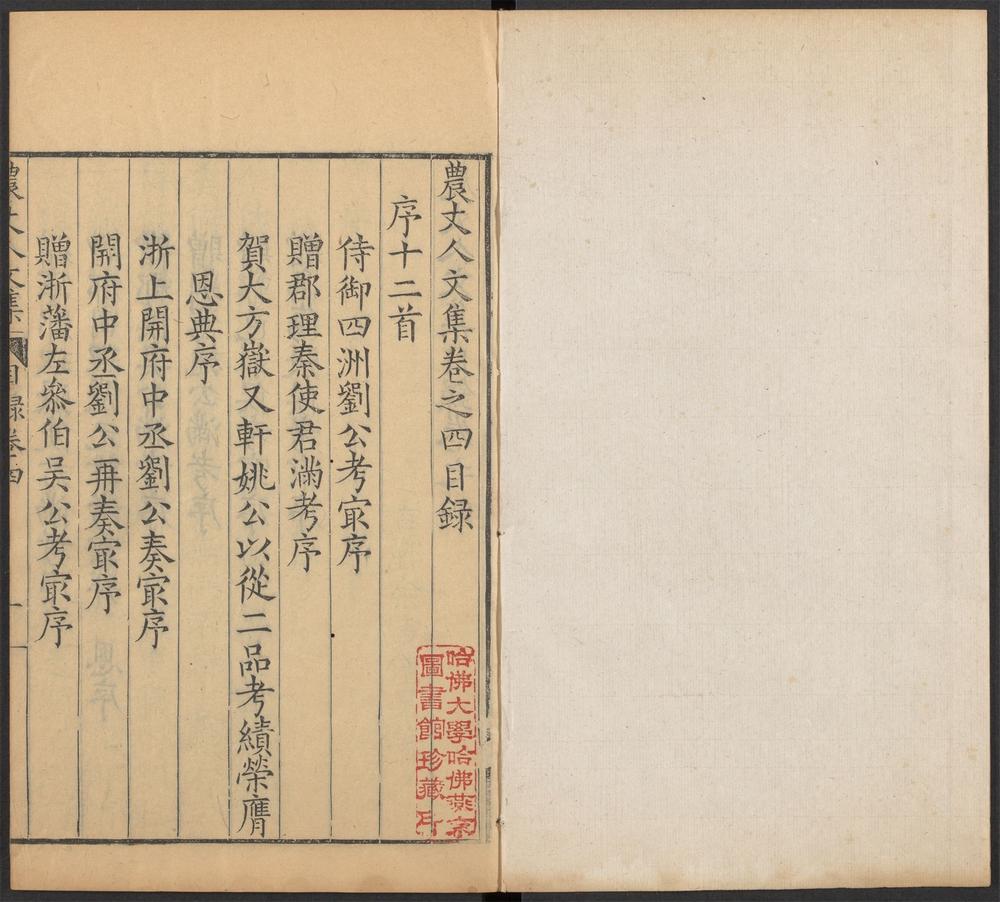 農丈人文集卷之四目録
序十二首
侍御四洲劉公考㝡序
贈郡理秦使君滿考序
賀大方嶽又軒姚公以從二品考績榮膺
恩典序
浙上開府中丞劉公奏㝡序
開府中丞劉公再奏㝡序
贈浙藩左叅伯吳公考㝡序
農丈人文集
目録卷四
一
哈佛大學哈佛燕京
圖書館珍藏印